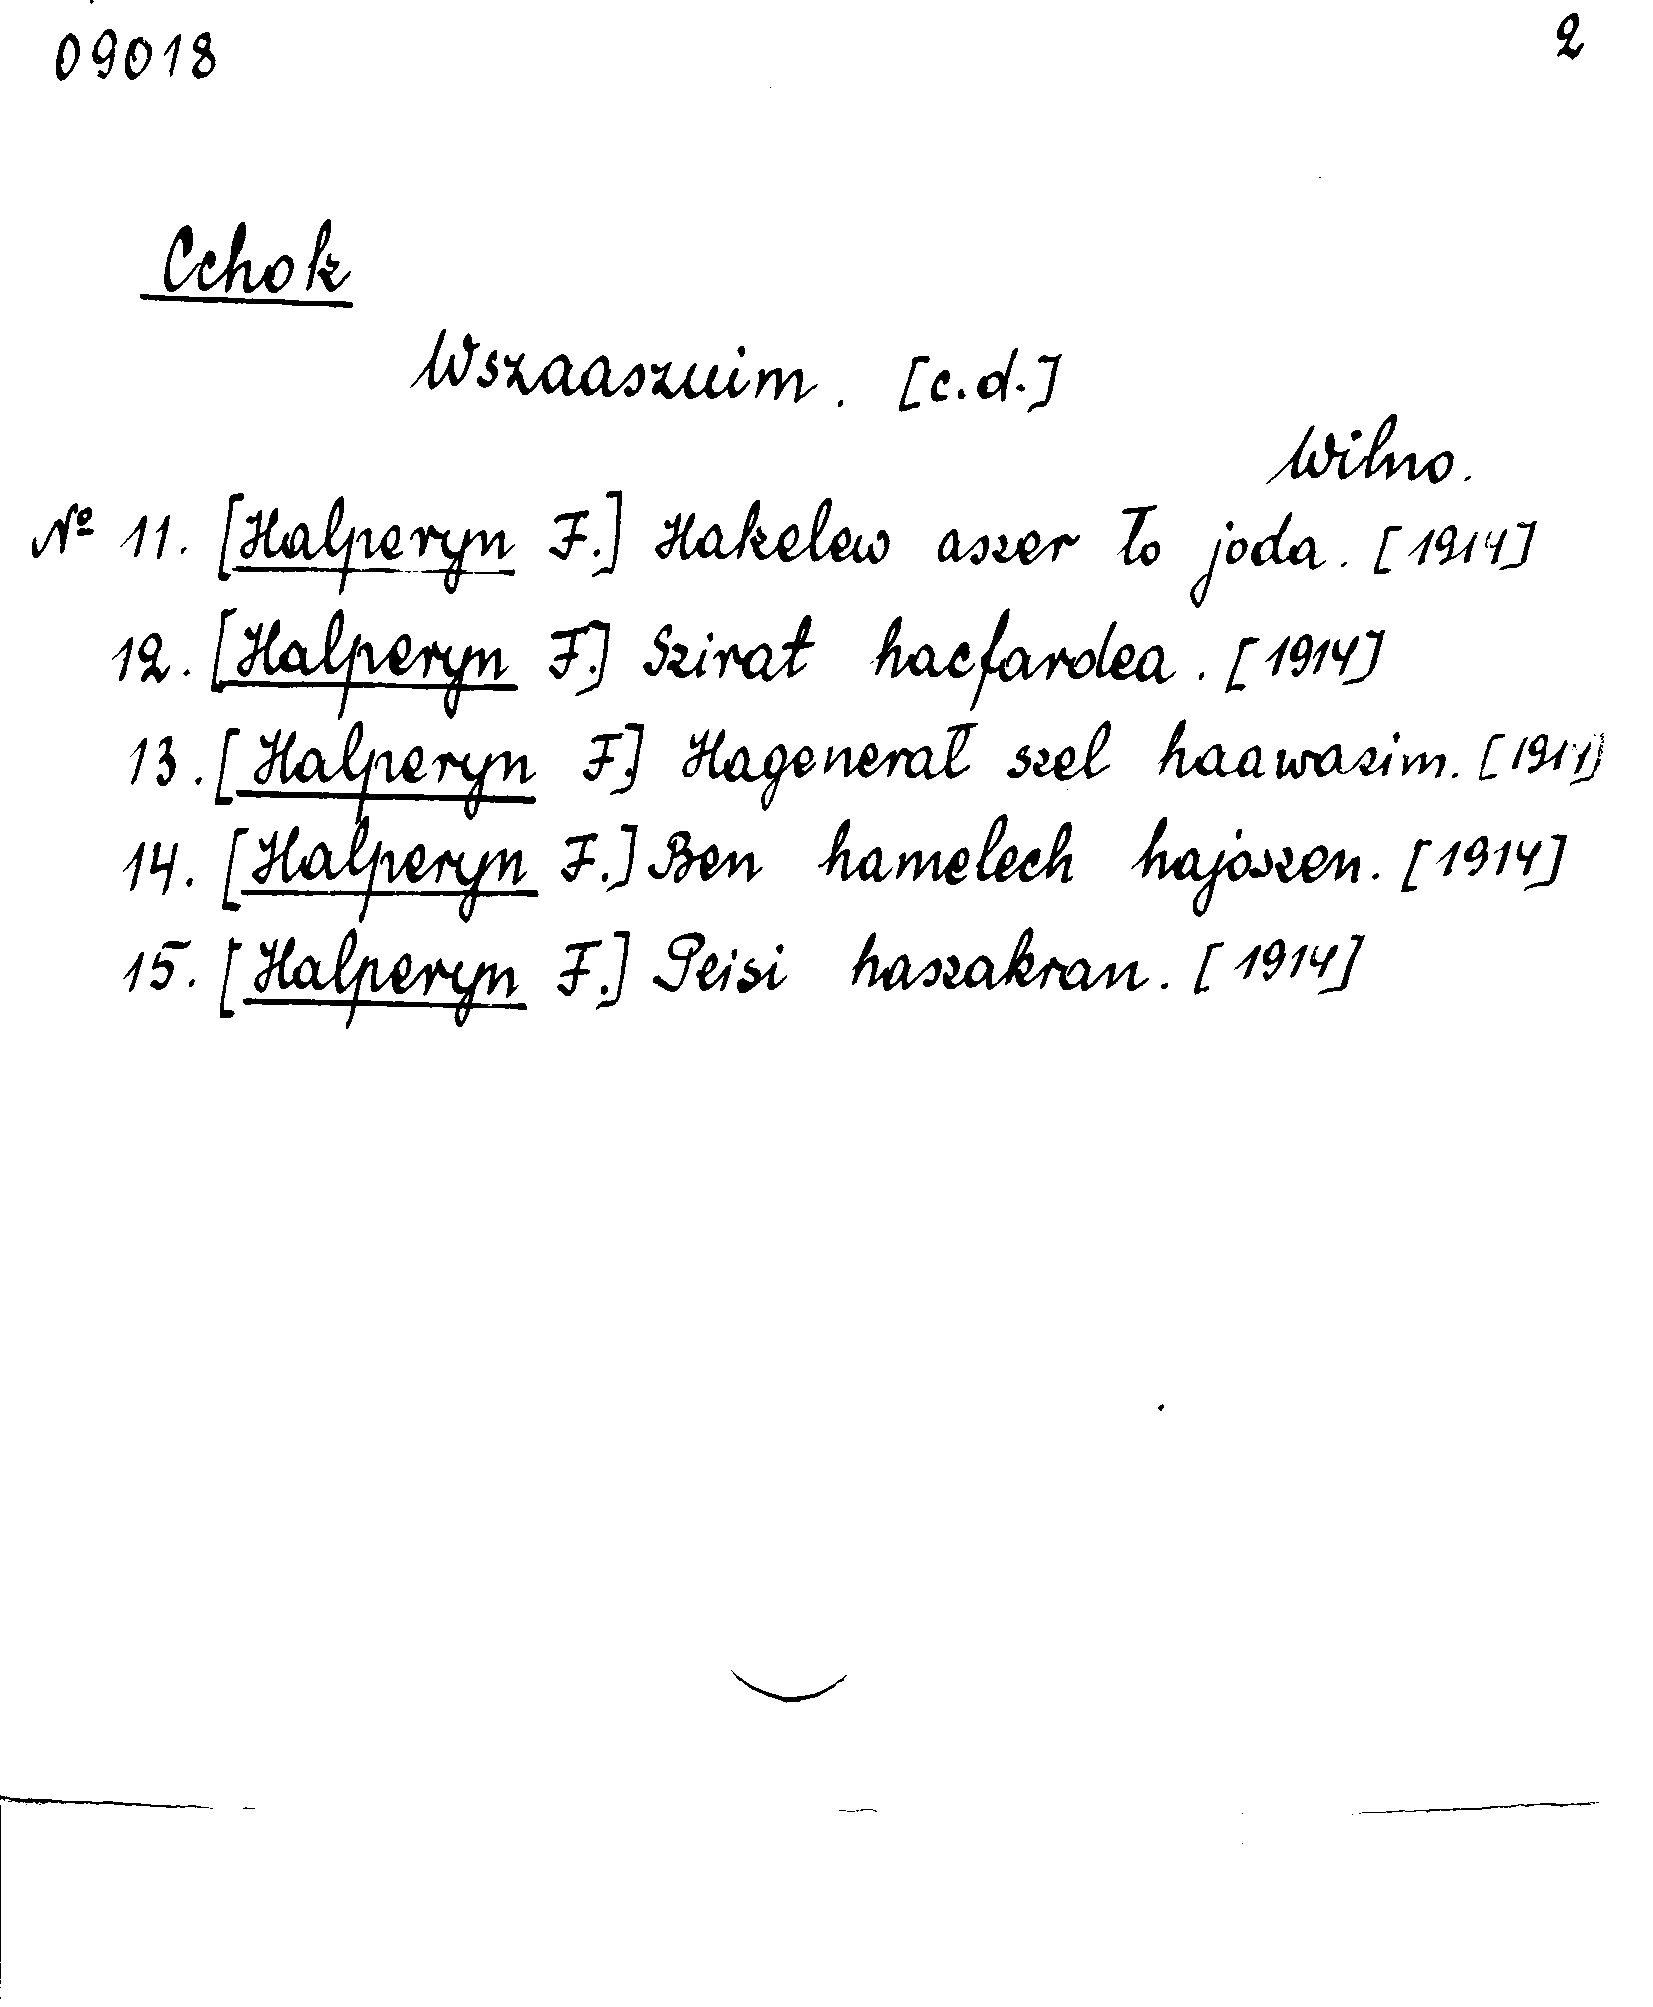 09018 2
Cchok
Wszaaszuim. [c.d.]
Wilno.
№ 11. [Halperyn F.] Hakelew aszer ło joda. [1914]
12. [Halperyn F.] Szirat hacfardea. [1914]
13. [Halperyn F.] Hagenerał szel haawazim. [1911]
14. [Halperyn F.] Ben hamelech hajoszen. [1914]
15. [Halperyn F.] Peisi haszakran. [1914]